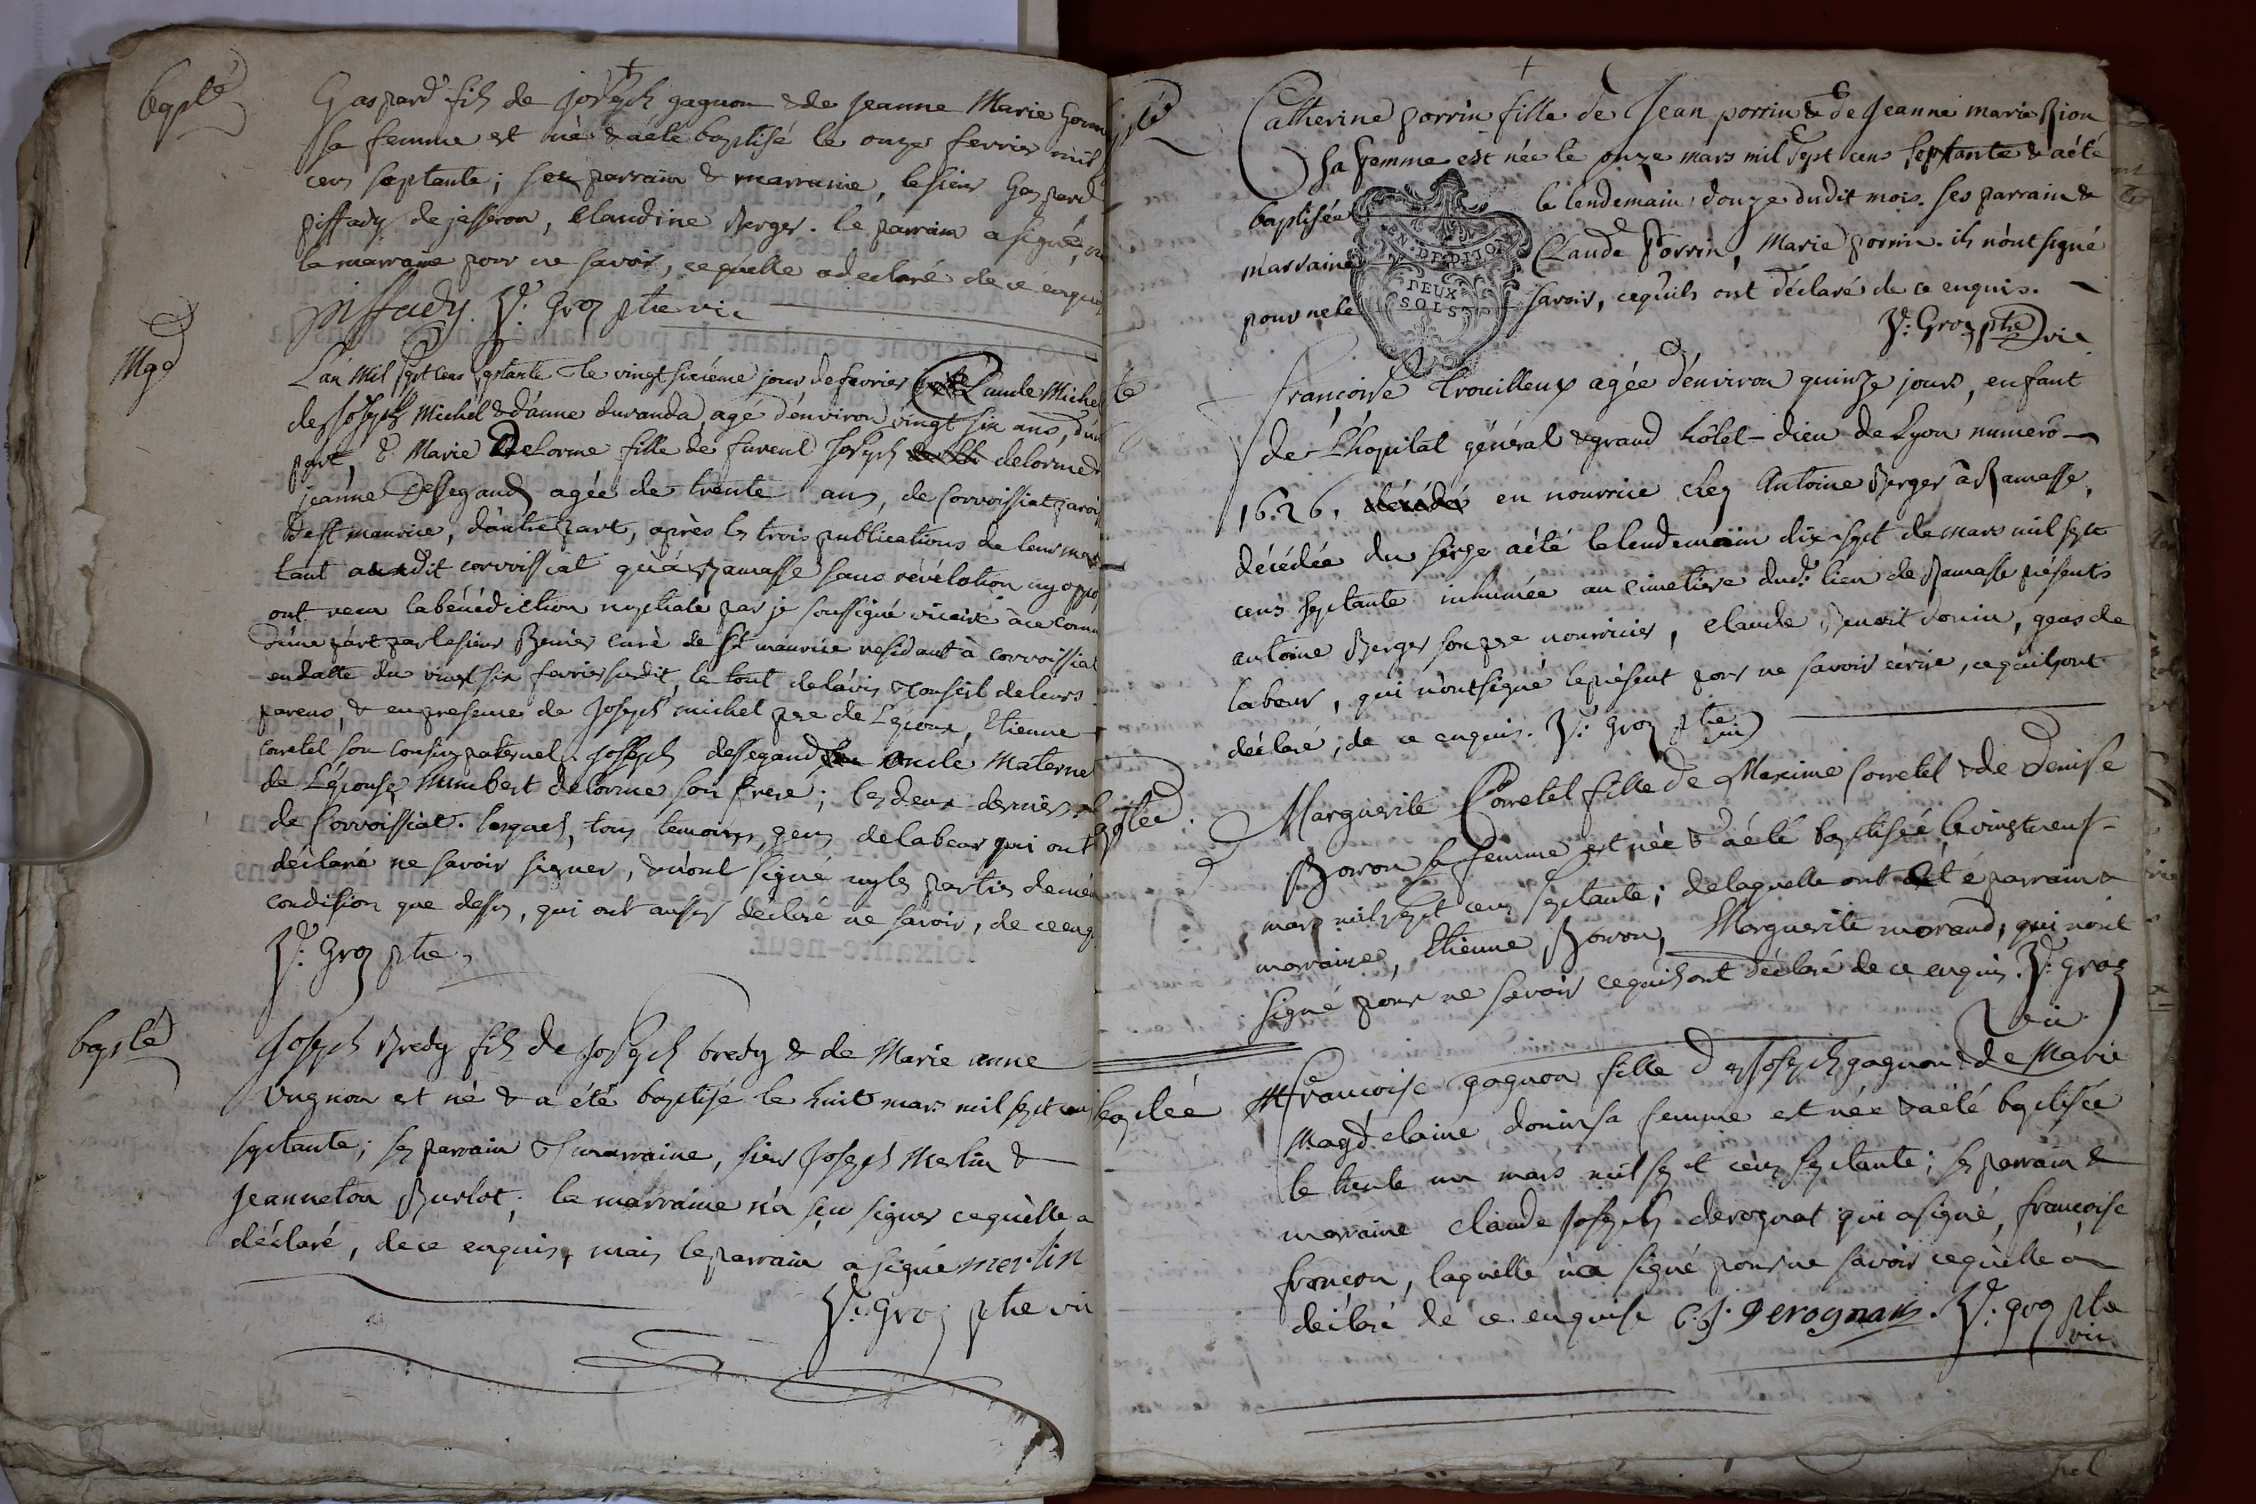 baptê
Gaspard fils de Joseph gagnon & de jeanne Marie
sa femme est né & aété baptisé le onze fevrier mil
cens septante; ses parrain & marraine, le sieur Gaspard
piffady de jasseron, Claudine Berger. le parrain a signé,
la marraine pour ne savoir, ce qu'elle adeclaré de ce enquise
piffady. J: Groz ptre vic
Mge
L'an Mil Sept cens Septante Le vingt sixième jour defevrier Claude Michel
de Joseph Michel & d'anne duranda, agé d'environ vingt six ans, d'une
part, & Marie Delorme fille de fureut Joseph delorme &
jeanne Dessegand agée de trente ans, de Corvoissiat
de st maurice, d'autre part, après les trois publications de leur
tant audit corvoissiat qu'à Ramasse sans révélation ny oppo
ont recu labénédiction nuptiale par je soussigné vicaire à ce
d'une part par lesieur curé de St maurice residant à corvoissiat
endatte du vingt six fevrier susdit, le tout de l'avis & conseil de leurs
parens, & enpresence de Joseph michel pere de L'epoux, Etienne
corretel son cousin paternel. Joseph dessegand oncle Maternel
de L'épouse, Humbert delorme son frere; les deux derniers
de Corvoissiat. lesquels, tous temoins, gens delabeur qui ont
déclaré ne savoir signer, & n'ont signé ny les parties de même
condition que dessus, qui ont aussy déclaré ne savoir, de ce enq
J: Groz ptre
baptê
Joseph Bredy fils de Joseph bredy & de Marie anne
Vugnon est né & a été baptisé le huit mars mil sept cens
septante; ses parrain & marraine, sieur Joseph Merlin &
Jeanneton Burlot; la marraine n'a sçu signer cequ'elle a
déclaré, dece enquise, mais le parrain a signé merlin
J: Groz ptre vic
Catherine porrin fille de Jean porrin & de Jeanne marie Rion
sa femme est née le onze mars mil sept cens septante & aété
baptisée le lendemain douze dudit mois. ses parrain &
marraine Claude Porrin, Marie porrin. ils n'ont signé
pour ne le savoir, cequ'ils ont déclaré de ce enquis.
GEN. DE DIJON
DEUX
SOLS
J: Groz ptre vic
françoise trouilleux agée d'environ quinze jours, enfant
de L'hopital général & grand hôtel-dieu de Lyon numero
1626. en nourrice chez Antoine Berger à Ramasse,
décédée du seize aété lelendemain dix sept demars mil sept
cens septante inhumée au cimetiere dud. lieu de Ramasse présents
antoine Berger son pre nourricier, claude Benoit donin, gens de
labeur, qui n'ontsigné leprésent pour ne savoir écrire, ce qu'ils ont
déclaré, de ce enquis. J: Groz ptre vic
baptée
Marguerite Corretel fille de Maxime Corretel & de Denise
Bozon sa femme est née & aété baptisée le vingt neuf
mars mil sept cens septante; delaquelle ont été parrain &
marraine, Etienne Bozon, Marguerite morand, qui n'ont
signé pour ne savoir cequ'ils ont déclaré de ce enquis. J: Groz
vic
baptée
françoise gagnon fille de Joseph gagnon & de Marie
Magdelaine donin sa femme est née & aété baptisée
le trente un mars mil sept cens septante; ses parrain &
marraine claude Joseph derognat qui asigné, françoise
françon, laquelle n'a signé pour ne savoir cequ'elle a
déclaré de ce enquise C. J. Derognat. J: Groz ptre
vic